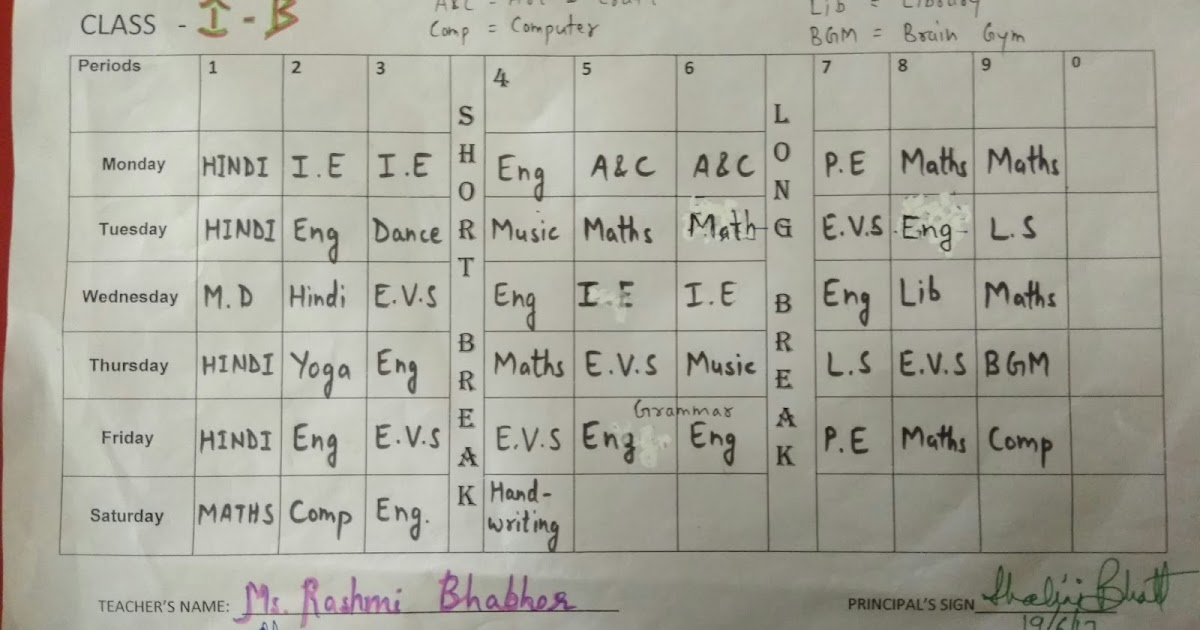 CLASS - I - B
Comp = Computer
BGM = Brain Gym
Periods 1 2 3 SHORT BREAK 4 5 6 LONG BREAK 7 8 9 0
Monday HINDI I.E I.E Eng A&C A&C P.E Maths Maths
Tuesday HINDI Eng Dance Music Maths Math E.V.S Eng L.S
Wednesday M.D Hindi E.V.S Eng I.E I.E Eng Lib Maths
Thursday HINDI Yoga Eng Maths E.V.S Music L.S E.V.S BGM
Grammar
Friday HINDI Eng E.V.S E.V.S Eng Eng P.E Maths Comp
Saturday MATHS Comp Eng. Hand-
writing
TEACHER'S NAME: Ms. Rashmi Bhabhor
PRINCIPAL'S SIGN